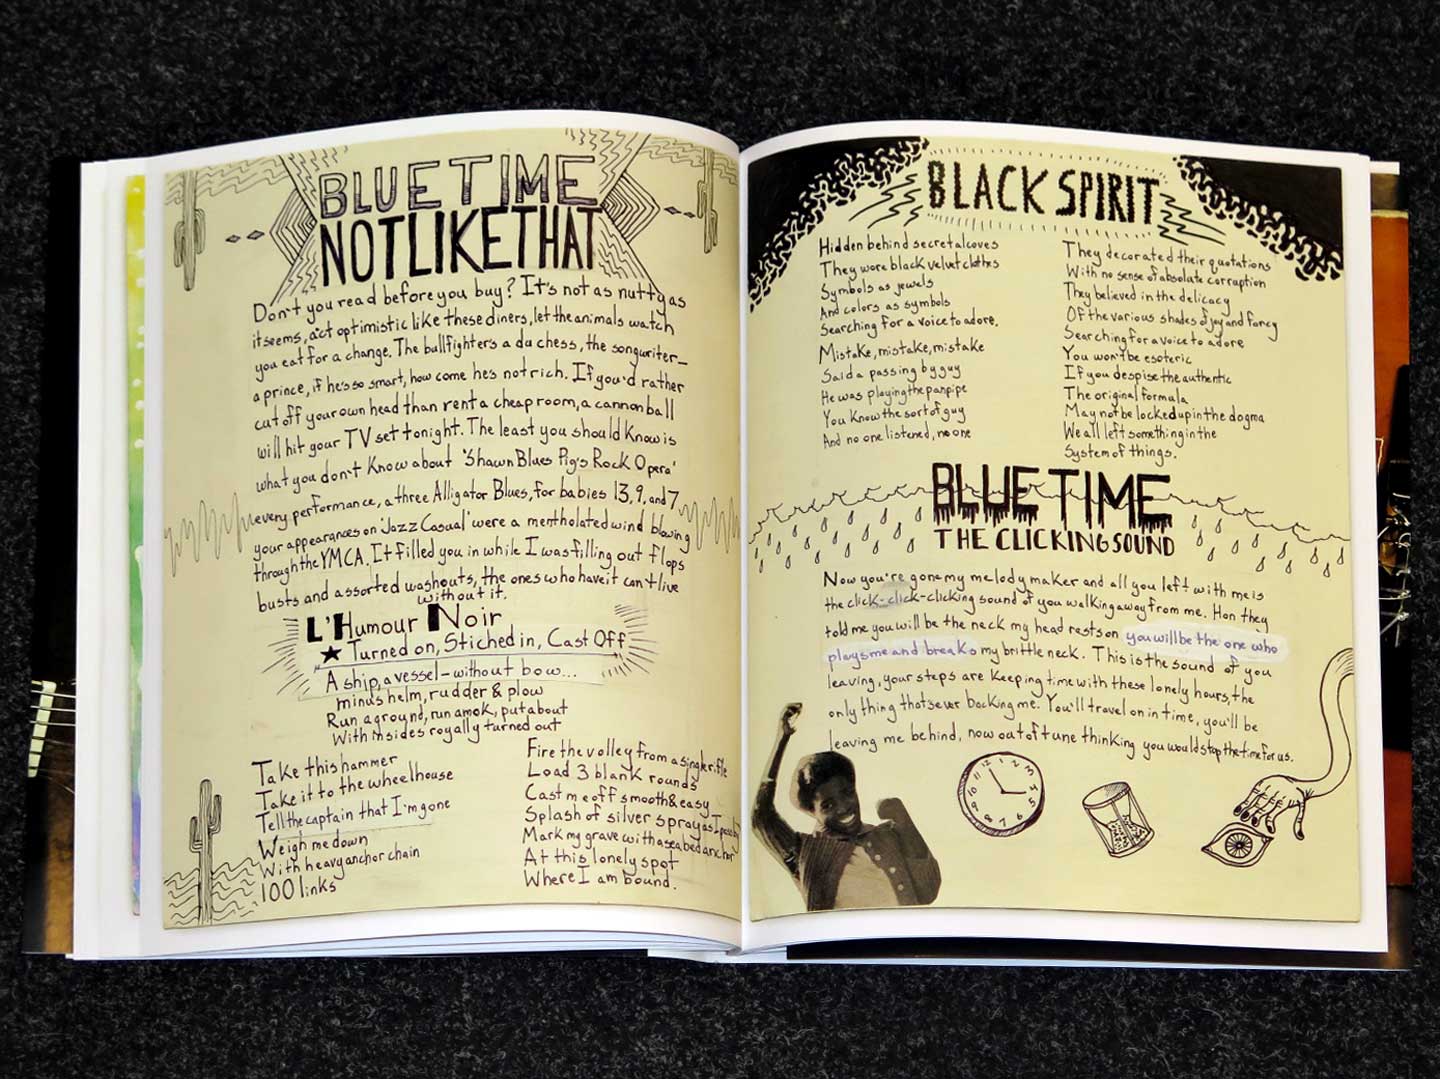 BLUE TIME
NOT LIKE THAT
Don't you read before you buy? It's not as nutty as
it seems, act optimistic like these diners, let the animals watch
you eat for a change. The bullfighter's a duchess, the songwriter–
a prince, if he's so smart, how come he's not rich. If you'd rather
cut off your own head than rent a cheap room, a cannonball
will hit your TV set tonight. The least you should know is
what you don't know about 'Shawn Blues Pig's Rock Opera'
every performance, a three Alligator Blues, for babies 13, 9, and 7,
your appearances on 'Jazz Casual' were a mentholated wind blowing
through the YMCA. It filled you in while I was filling out flops
busts and assorted washouts, the ones who have it can't live
without it.
L'Humour Noir
Turned on, Stiched in, Cast Off
A ship, a vessel–without bow...
minus helm, rudder & plow
Run aground, run amok, put about
With insides royally turned out
Take this hammer
Take it to the wheelhouse
Tell the captain that I'm gone
Weigh me down
With heavy anchor chain
100 links
Fire the volley from a single rifle
Load 3 blank rounds
Cast me off smooth & easy
Splash of silver spray as I
Mark my grave with a seabed anchor
At this lonely spot
Where I am bound.
BLACK SPIRIT
Hidden behind secret alcoves
They wore black velvet cloths
Symbols as jewels
And colors as symbols
Searching for a voice to adore.
Mistake, mistake, mistake
Said a passing by guy
He was playing the panpipe
You know the sort of guy
And no one listened, no one
They decorated their quotations
With no sense of absolute corruption
They believed in the delicacy
Of the various shades of joy and fancy
Searching for a voice to adore
You won't be esoteric
If you despise the authentic
The original formula
May not be locked up in the dogma
We all left something in the
System of things.
BLUE TIME
THE CLICKING SOUND
Now you're gone my melody maker and all you left with me is
the click-click-clicking sound of you walking away from me. Hon they
told me you will be the neck my head rests on you will be the one who
plays me and breaks my brittle neck. This is the sound of you
leaving, your steps are keeping time with these lonely hours, the
only thing that's ever backing me. You'll travel on in time, you'll be
leaving me behind, now out of tune thinking you would stop the time for us.
12 1 2 3 4 5 6 7 8 9 10 11